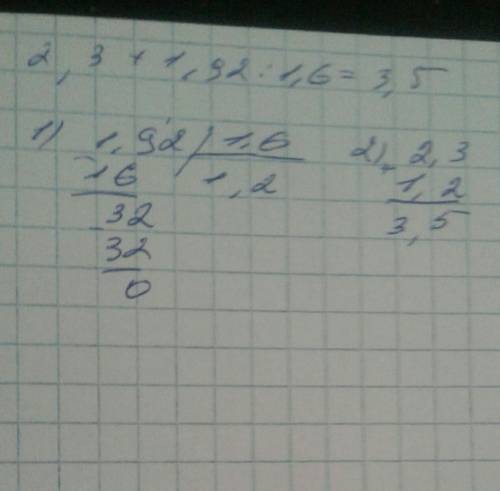 2,3 + 1,92 : 1,6 = 3,5
1) 1,92 | 1,6
- 16 1,2
- 32
32
0
2) + 2,3
1,2
3,5